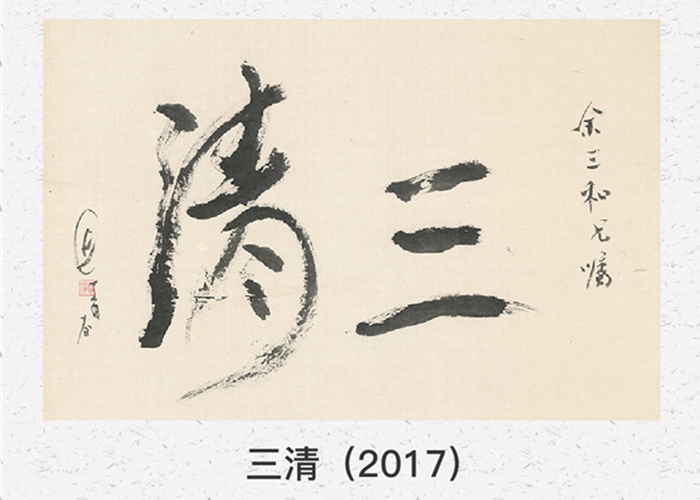 余三和兄嘱
三清
三清（2017）